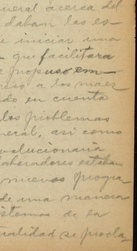 neral acerca del
daban las es-
e iniciar una
que facilitara
e propuso em-
a los maes
do en cuenta
los problemas
neral, así como
volucionaria
aboradores estaban
menos progra
de una manera
blemas de la
alidad se procla